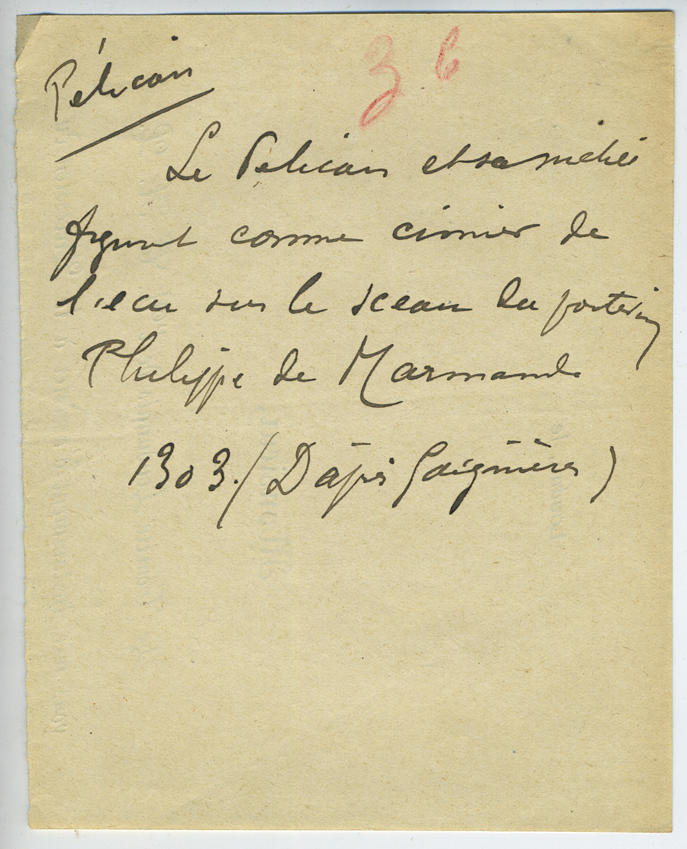 Pélican
36
Le Pelican et sa nichée
figurent comme cimier de
l'ecu sur le sceau du
Philippe de Marmande
1303. (D'après Gaignières)